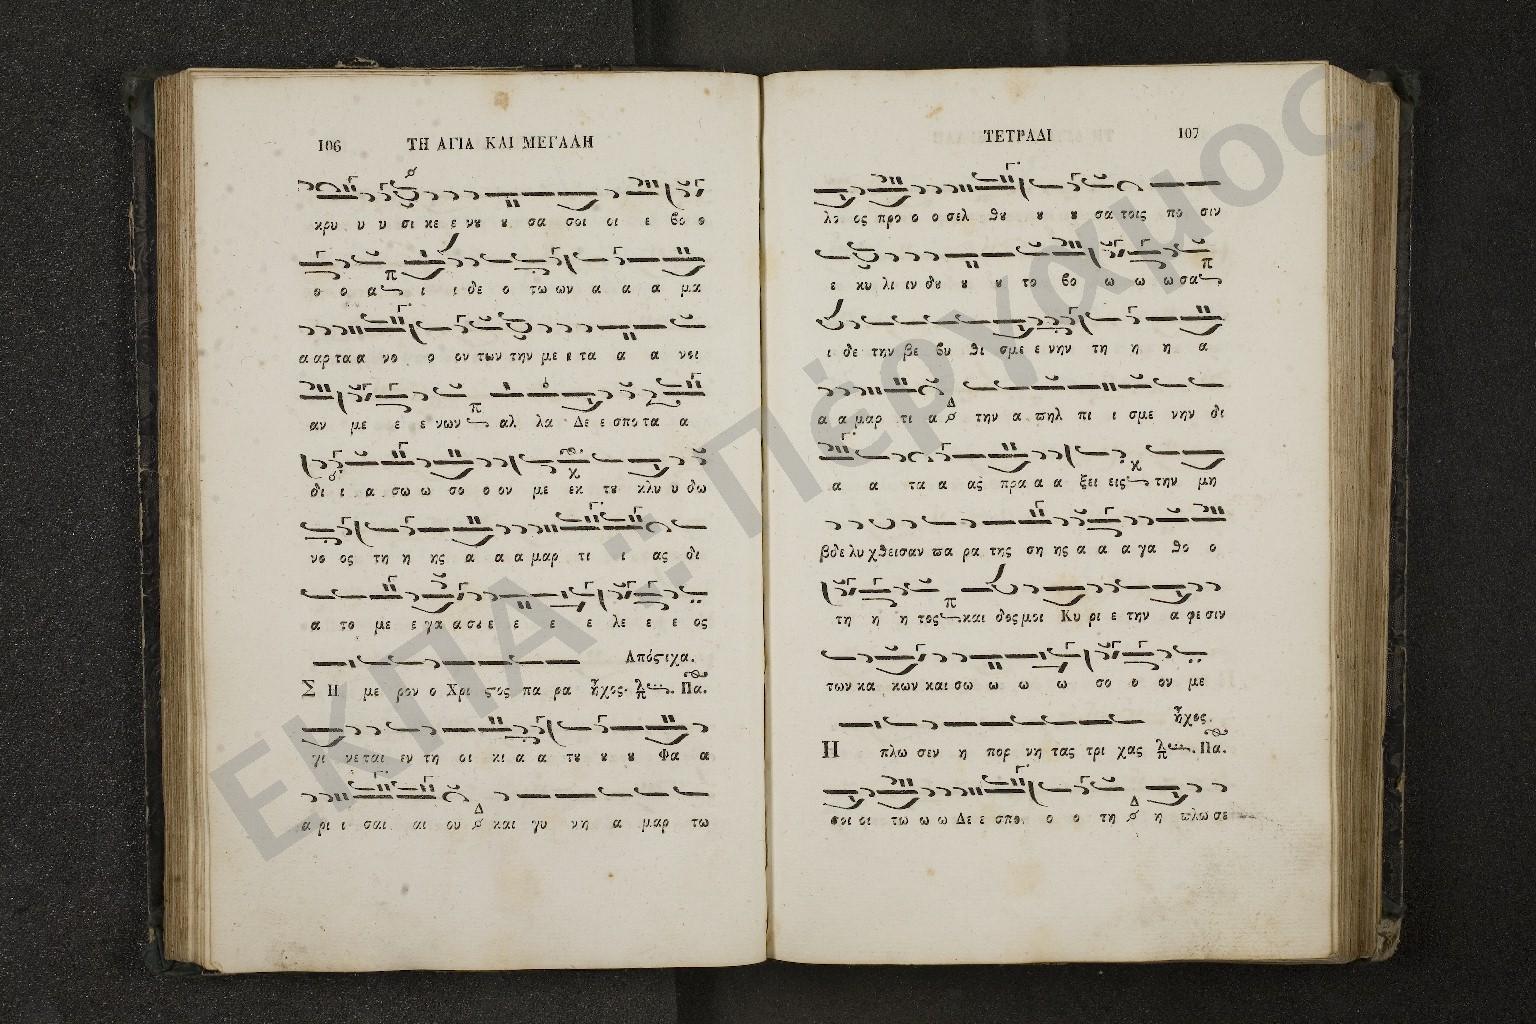 106 ΤΗ ΑΓΙΑ ΚΑΙ ΜΕΓΑΛΗ
κρυ υ υ σι κε ε νου ου σα σοι οι ε βο ο
π
ο ο α ι ι δε ο τω ων α α α μα
α αρ τα α νο ο ον των την με ε τα α α νοι
π
αν με ε ε νων αλ λα Δε ε σπο τα α
χ
δι ι α σω ω σο ο ον με εκ του κλυ υ δω
νο ος τη η ης α α α μαρ τι ι ας δι
α το με ε γα α σου ε ε ε ε λε ε ε ος
Απόστιχα.
Σ Η με ρον ο Χρι στος πα ρα ἦχος Πα.
γι νε ται εν τη οι κι α α του ου ου Φα α
Δ
α ρι ι σαι αι ου και γυ νη α μαρ τω
ΤΕΤΡΑΔΙ 107
λο ος προ ο ο σελ θου ου ου σα τοις πο σιν
π
ε κυ λι ιν δου ου ου το βο ω ω ω σα
ι δε την βε βυ θι σμε ε νην τη η η α
Δ
α α μαρ τι α την α πηλ πι ι σμε νην δι
χ
α α τα α ας πρα α α ξει εις την μη
βδε λυ χθεισαν πα ρα της ση ης α α α γα θο ο
π
τη η η τος και δος μοι Κυ ρι ε την α φε σιν
των κα κων και σω ω ω ω σο ο ον με
ἦχος.
Η πλω σεν η πορ νη τας τρι χας Πα.
Δ
σοι οι τω ω ω Δε ε σπο ο ο τη η πλω σε
ΕΚΠΑ :: Πέργαμος